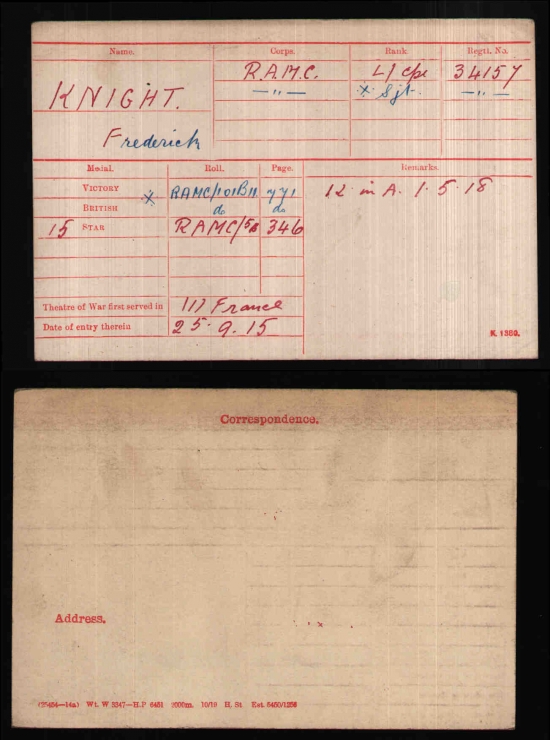 Name. Corps. Rank. Regtl. No.
KNIGHT. R.A.M.C. L/Cpl 34157
—"— x Sjt. —"—
Frederick
Medal. Roll. Page. Remarks.
VICTORY x RAMC/101B11 771 K. in A. 1.5.18
BRITISH do do
15 STAR RAMC/5B 346
Theatre of War first served in (1) France
Date of entry therein 25.9.15
K. 1380.
Correspondence.
Address.
(25434—14a) Wt. W 3347—H.P 6451 2000m. 10/19 H. St Est. 6450/1256